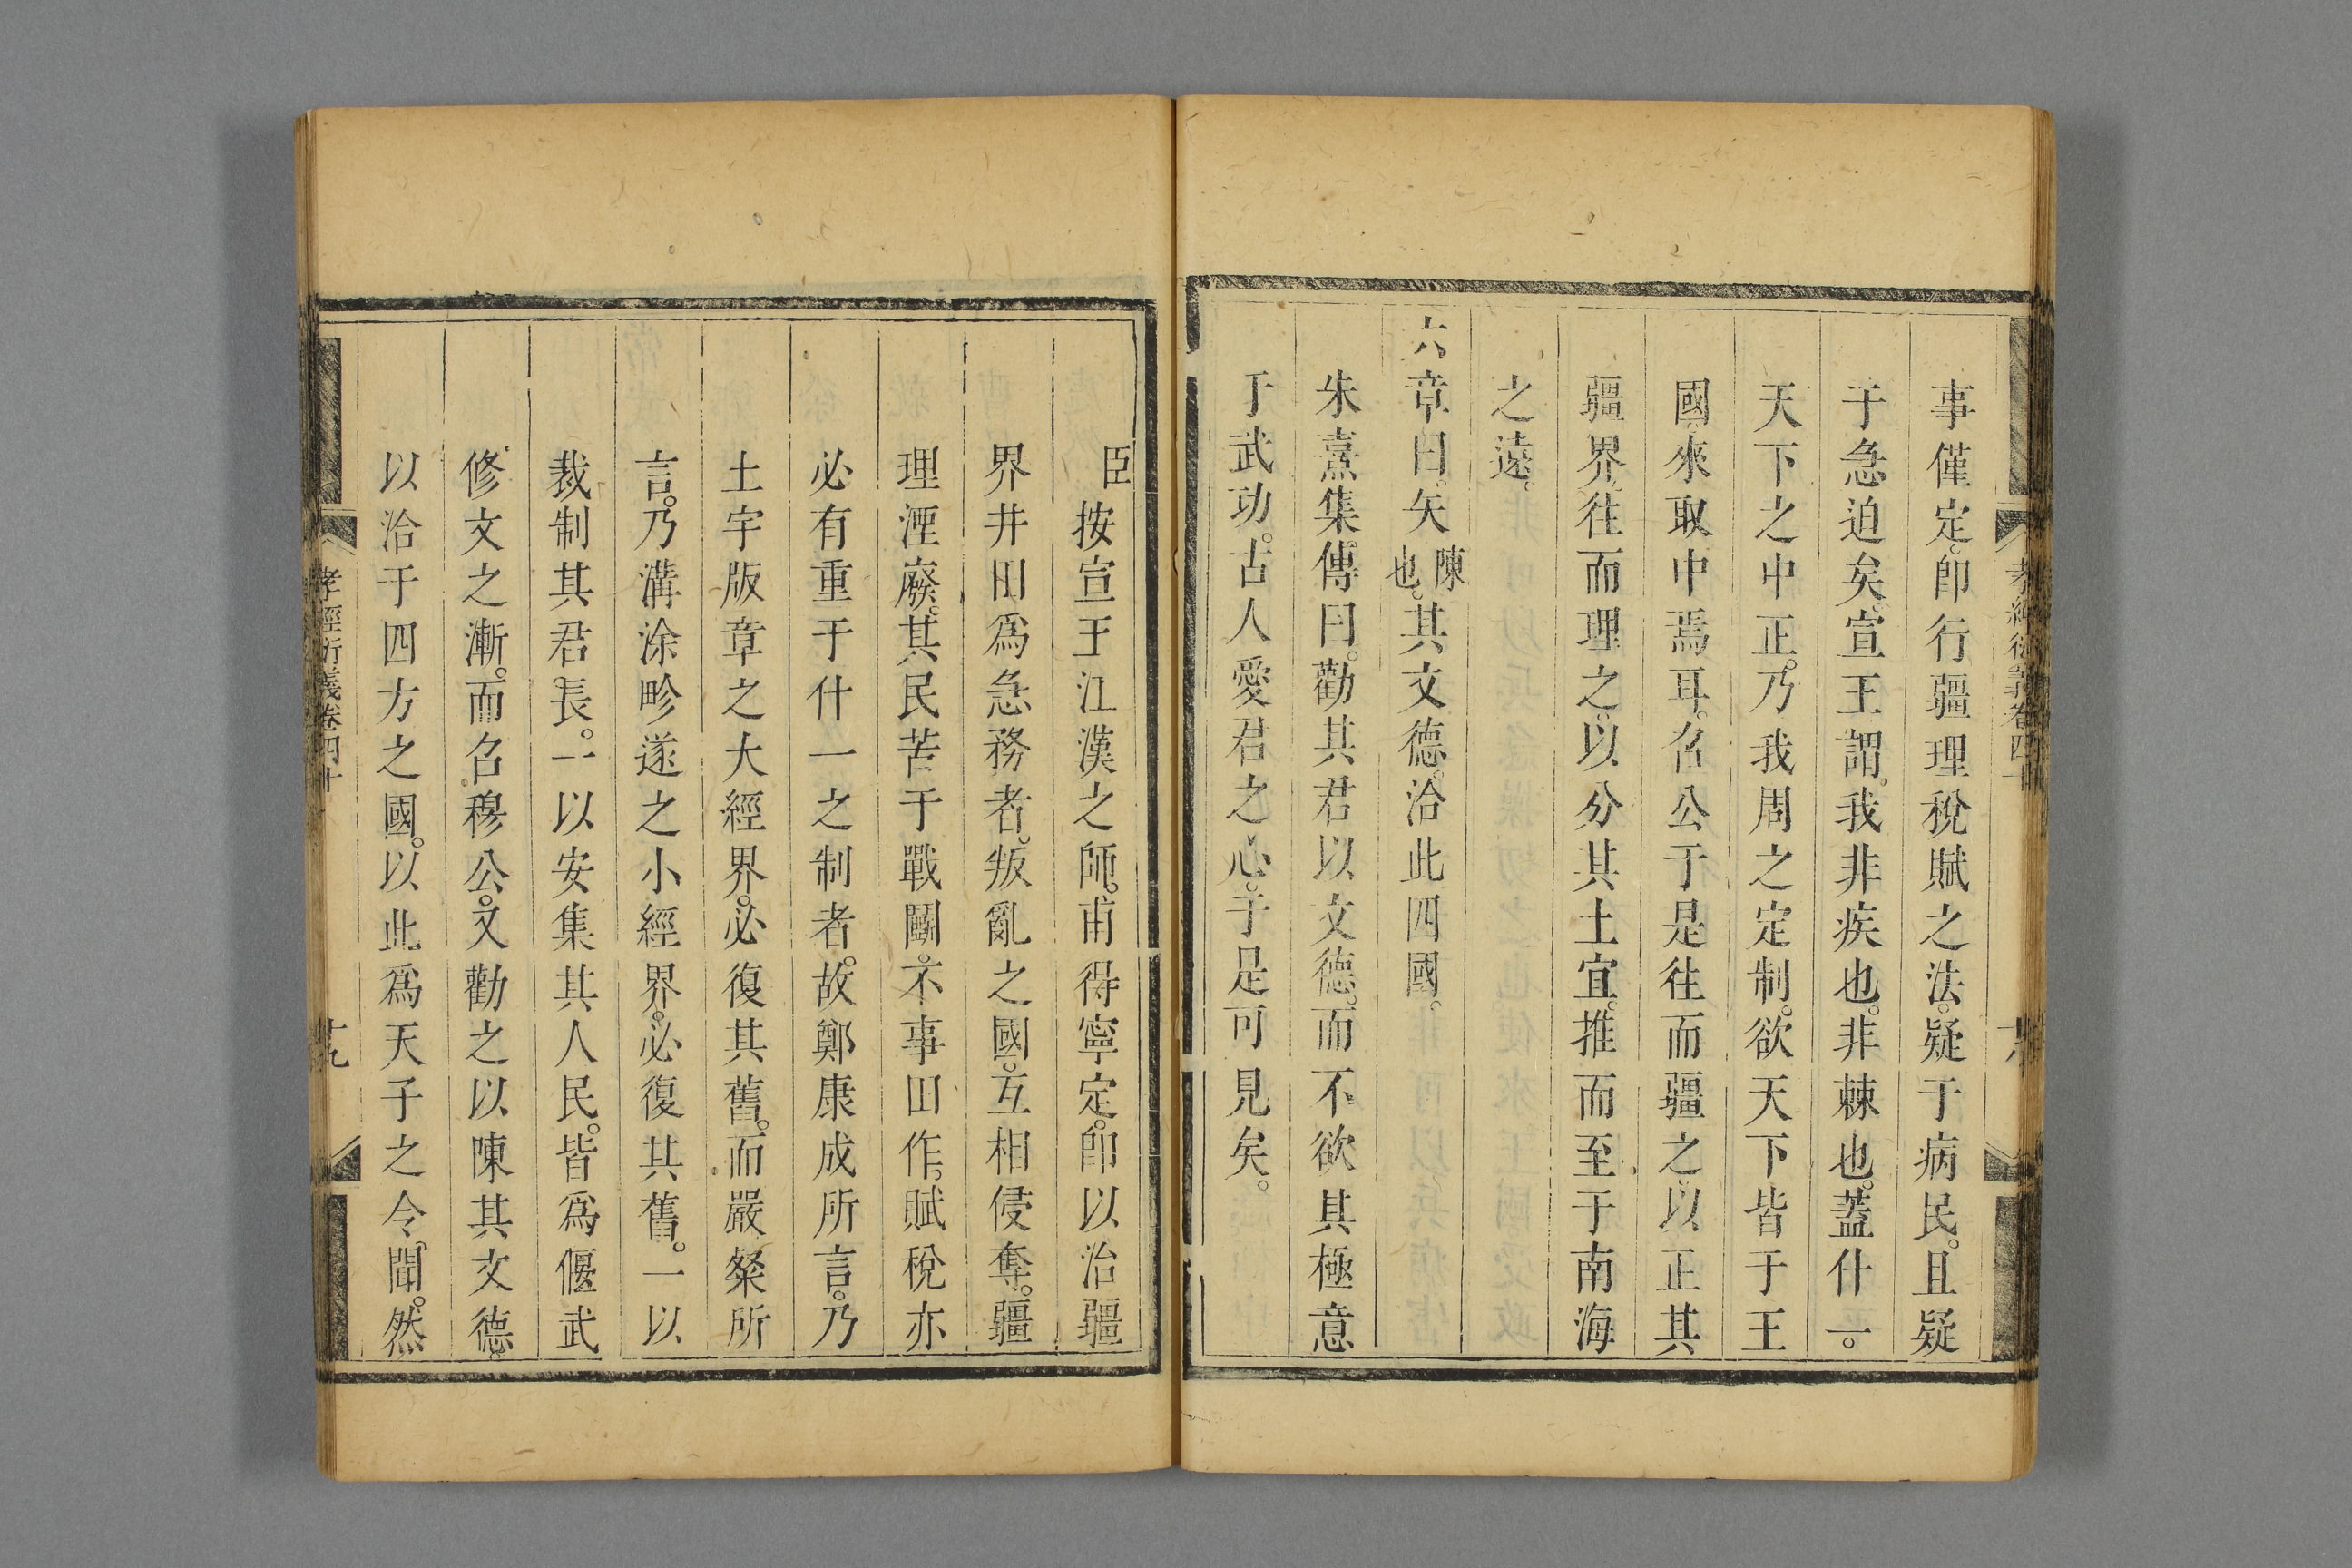 事僅定。卽行疆理稅賦之法。疑于病民。且疑
于急迫矣。宣王謂。我非疾也。非棘也。蓋什一。
天下之中正。乃我周之定制。欲天下皆于王
國。來取中焉耳。召公于是往而疆之。以正其
疆界。往而理之。以分其土宜。推而至于南海
之遠。
六章曰。矢陳也。其文德。洽此四國。
朱熹集傳曰。勸其君以文德。而不欲其極意
于武功。古人愛君之心。于是可見矣。
臣按宣王江漢之師。甫得寧定。卽以治疆
界井田爲急務者。叛亂之國。互相侵奪。疆
理湮廢。其民苦于戰鬭。不事田作。賦稅亦
必有重于什一之制者。故鄭康成所言。乃
土宇版章之大經界。必復其舊。而嚴粲所
言。乃溝涂畛遂之小經界。必復其舊。一以
裁制其君長。一以安集其人民。皆爲偃武
修文之漸。而召穆公。又勸之以陳其文德。
以洽于四方之國。以此爲天子之令聞。然
孝經衍義卷四十
十九